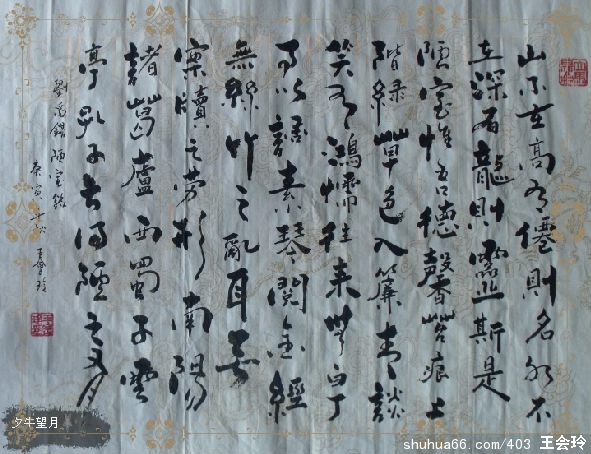 山不在高有僊則名水不
在深有龍則靈斯是
陋室惟吾德馨苔痕上
階綠草色入簾青談
笑有鴻儒往來無白丁
可以調素琴閱金經
無絲竹之亂耳無
案牘之勞形南陽
諸葛廬西蜀子雲
亭孔子云何陋之有
劉禹錫陋室銘
庚寅 王會玲
夕牛望月
shuhua66.com/403 王会玲